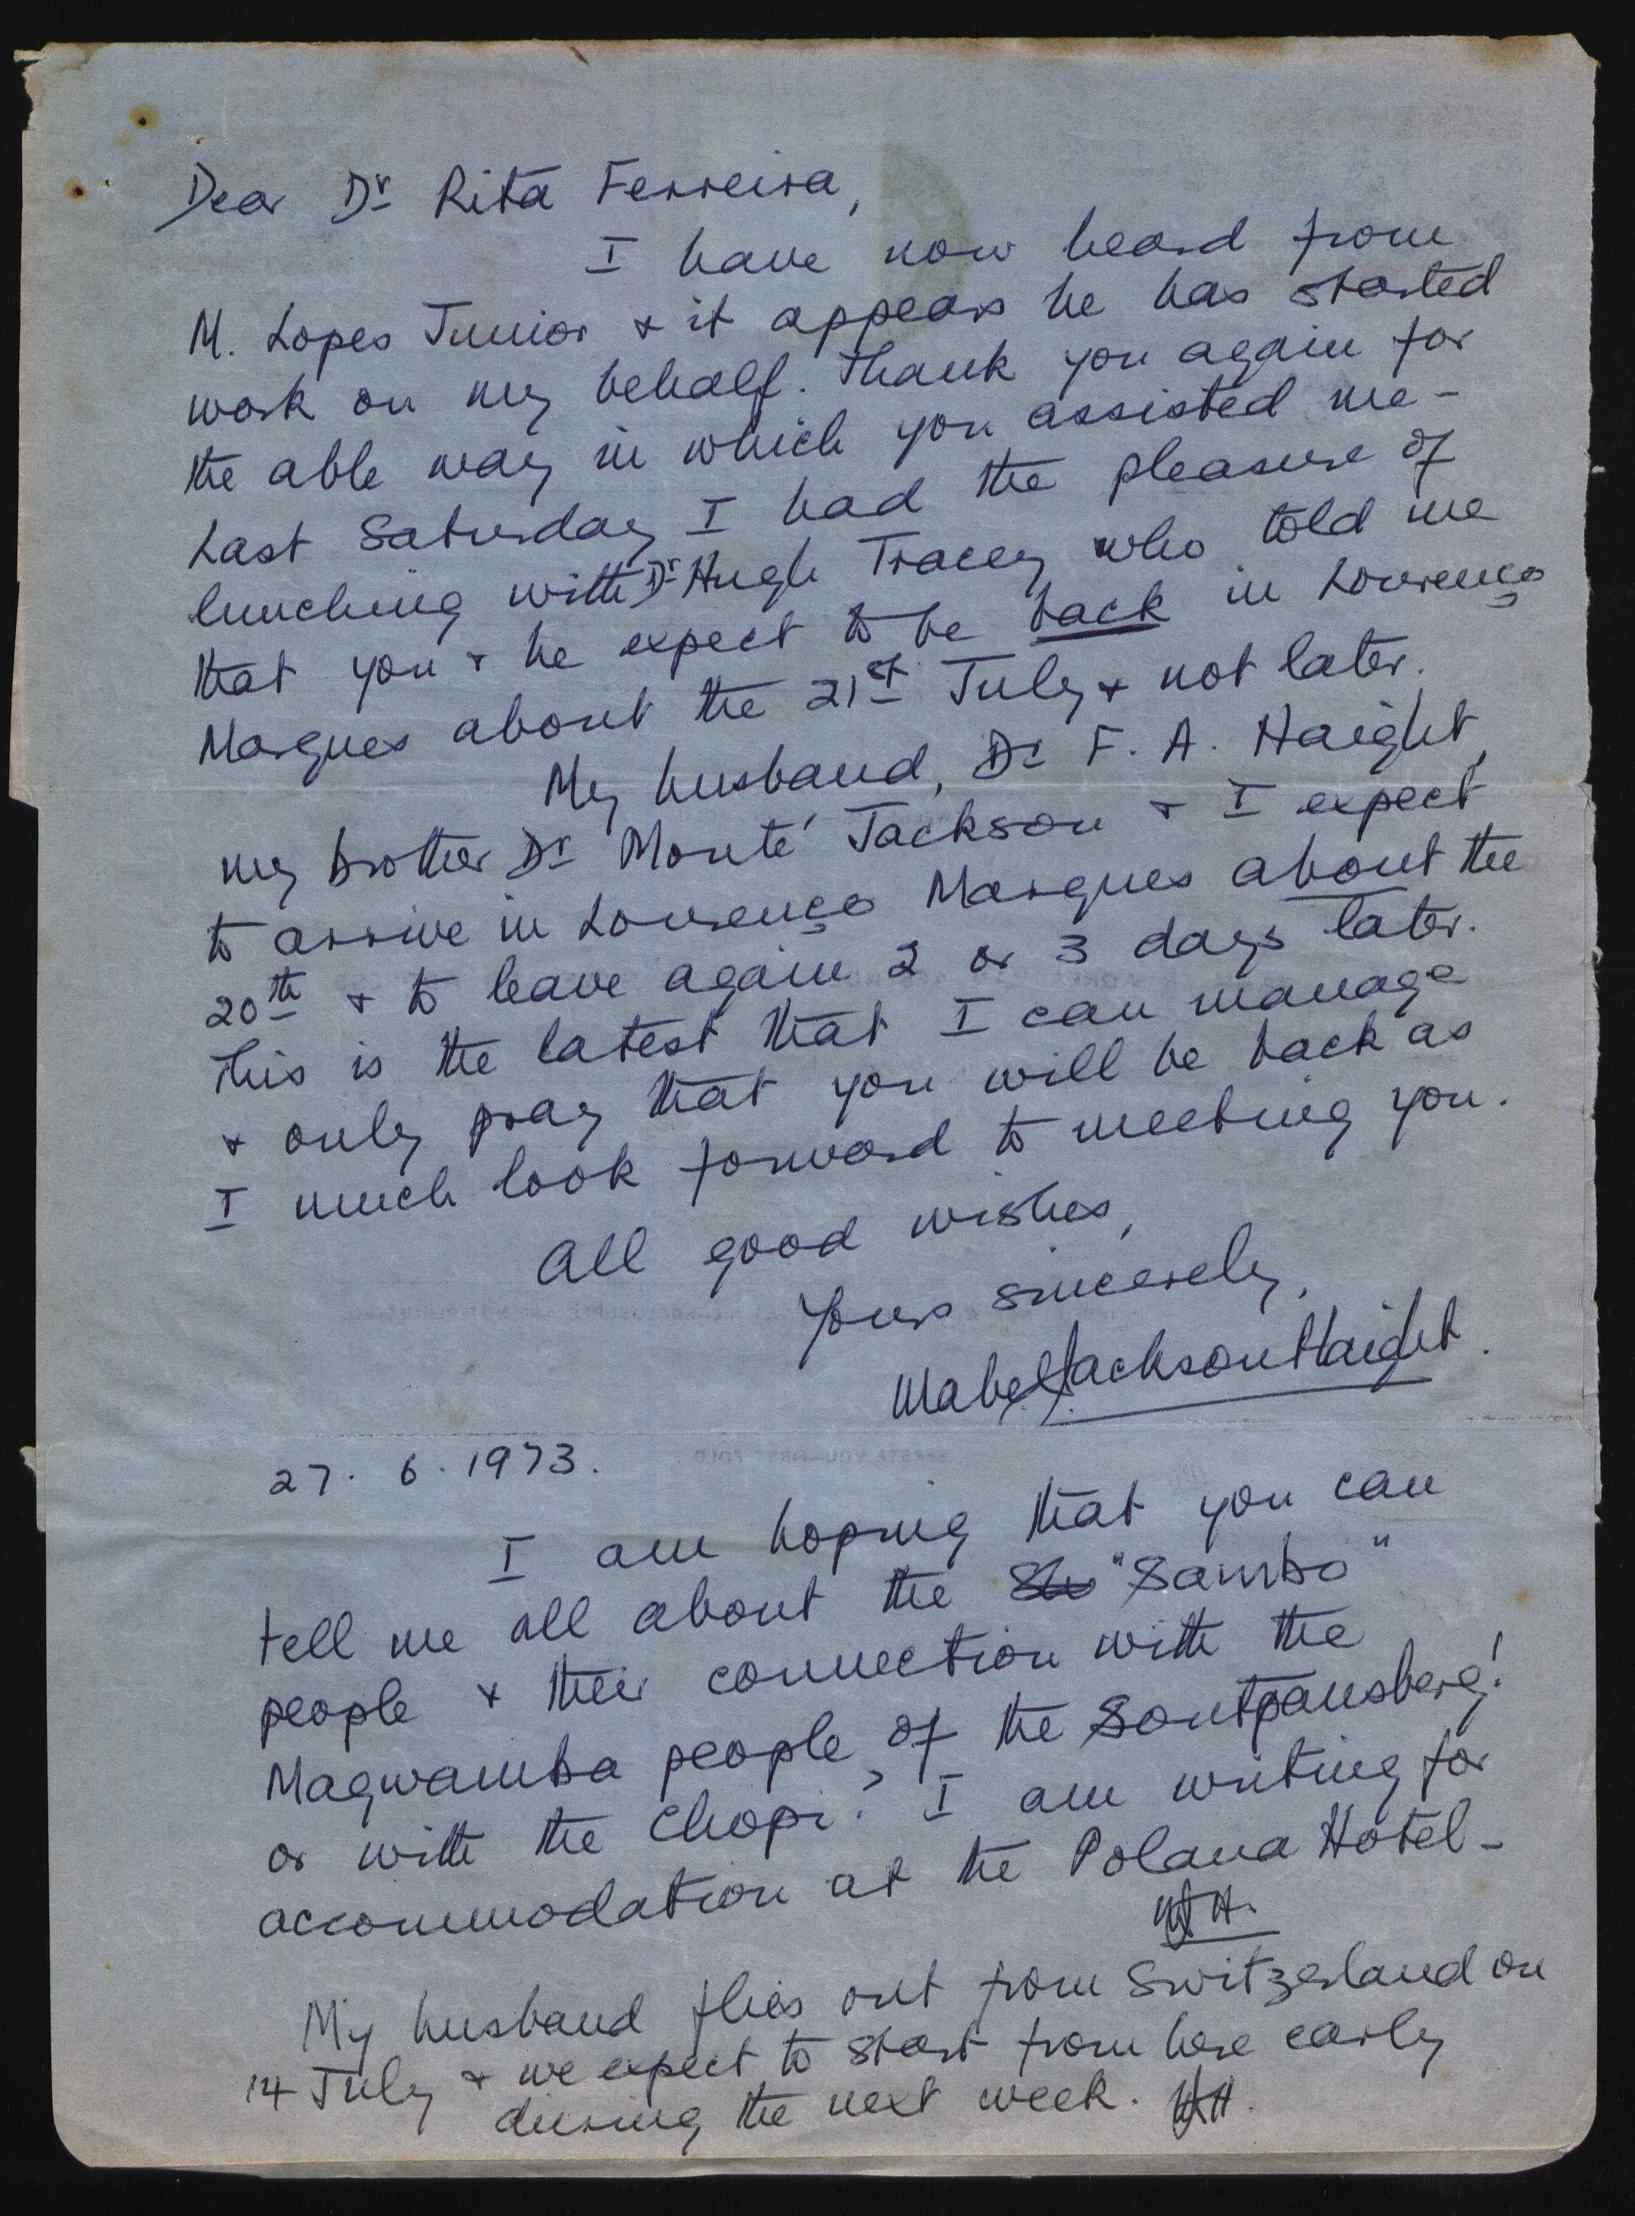 Dear Dr Rita Ferreira,
I have now heard from
M. Lopes Junior & it appears he has started
work on my behalf. Thank you again for
the able way in which you assisted me -
Last Saturday I had the pleasure of
lunching with Dr Hugh Tracey who told me
that you & he expect to be back in Lourenço
Marques about the 21st July & not later.
My husband, Dr F. A. Haight,
my brother Dr Monté Jackson & I expect
to arrive in Lourenço Marques about the
20th & to leave again 2 or 3 days later.
This is the latest that I can manage
& only pray that you will be back as
I much look forward to meeting you.
All good wishes,
Yours sincerely,
Mabel Jackson Haight.
27. 6. 1973.
I am hoping that you can
tell me all about the "Sambo"
people & their connection with the
Magwamba people of the Soutpansberg!
or with the Chopi? I am writing for
accommodation at the Polana Hotel -
MJH.
My husband flies out from Switzerland on
14 July & we expect to start from here early
during the next week. MJH.